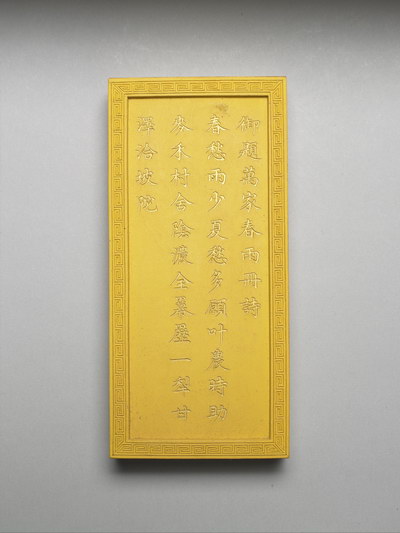 御題萬家春雨冊詩
春愁雨少夏愁多願叶農時助
麥禾村舍陰濃全屋一犁甘
澤洽坡陀